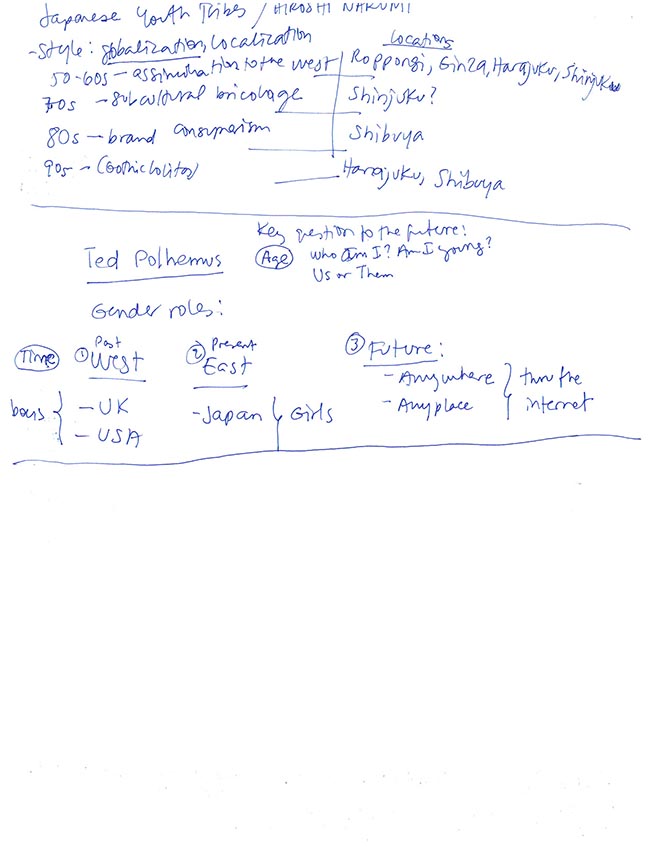 Japanese Youth Tribes / HIROSHI NARUMI
-Style: globalization, Localization
Locations
50-60s – assimination to the west
Roppongi, Ginza, Harajuku, Shinjuku
70s – subcultural bricolage
Shinjuku?
80s – brand consumerism
Shibuya
90s – (Gothic lolita)
Harajuku, Shibuya
Key question to the future:
Ted Polhemus
Age who am I? Am I young?
Us or Them
Gender roles:
Time
① Past West
② Present East
③ Future:
boys
– UK
– USA
-Japan
Girls
- Anywhere
- Anyplace
thru the
internet